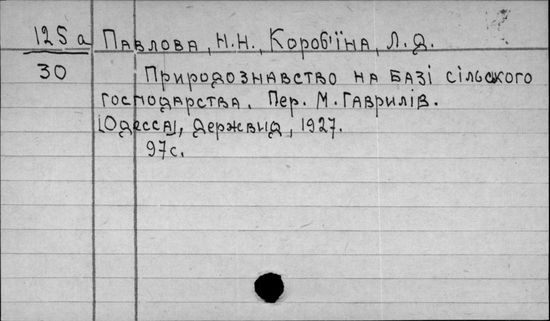 125а Павлова, Н.Н., Короб'їна, Л.Д.
30 Природознавство на базі сільского
господарства. Пер. М. Гаврилів.
[Одесса], Держвид, 1927.
97с.